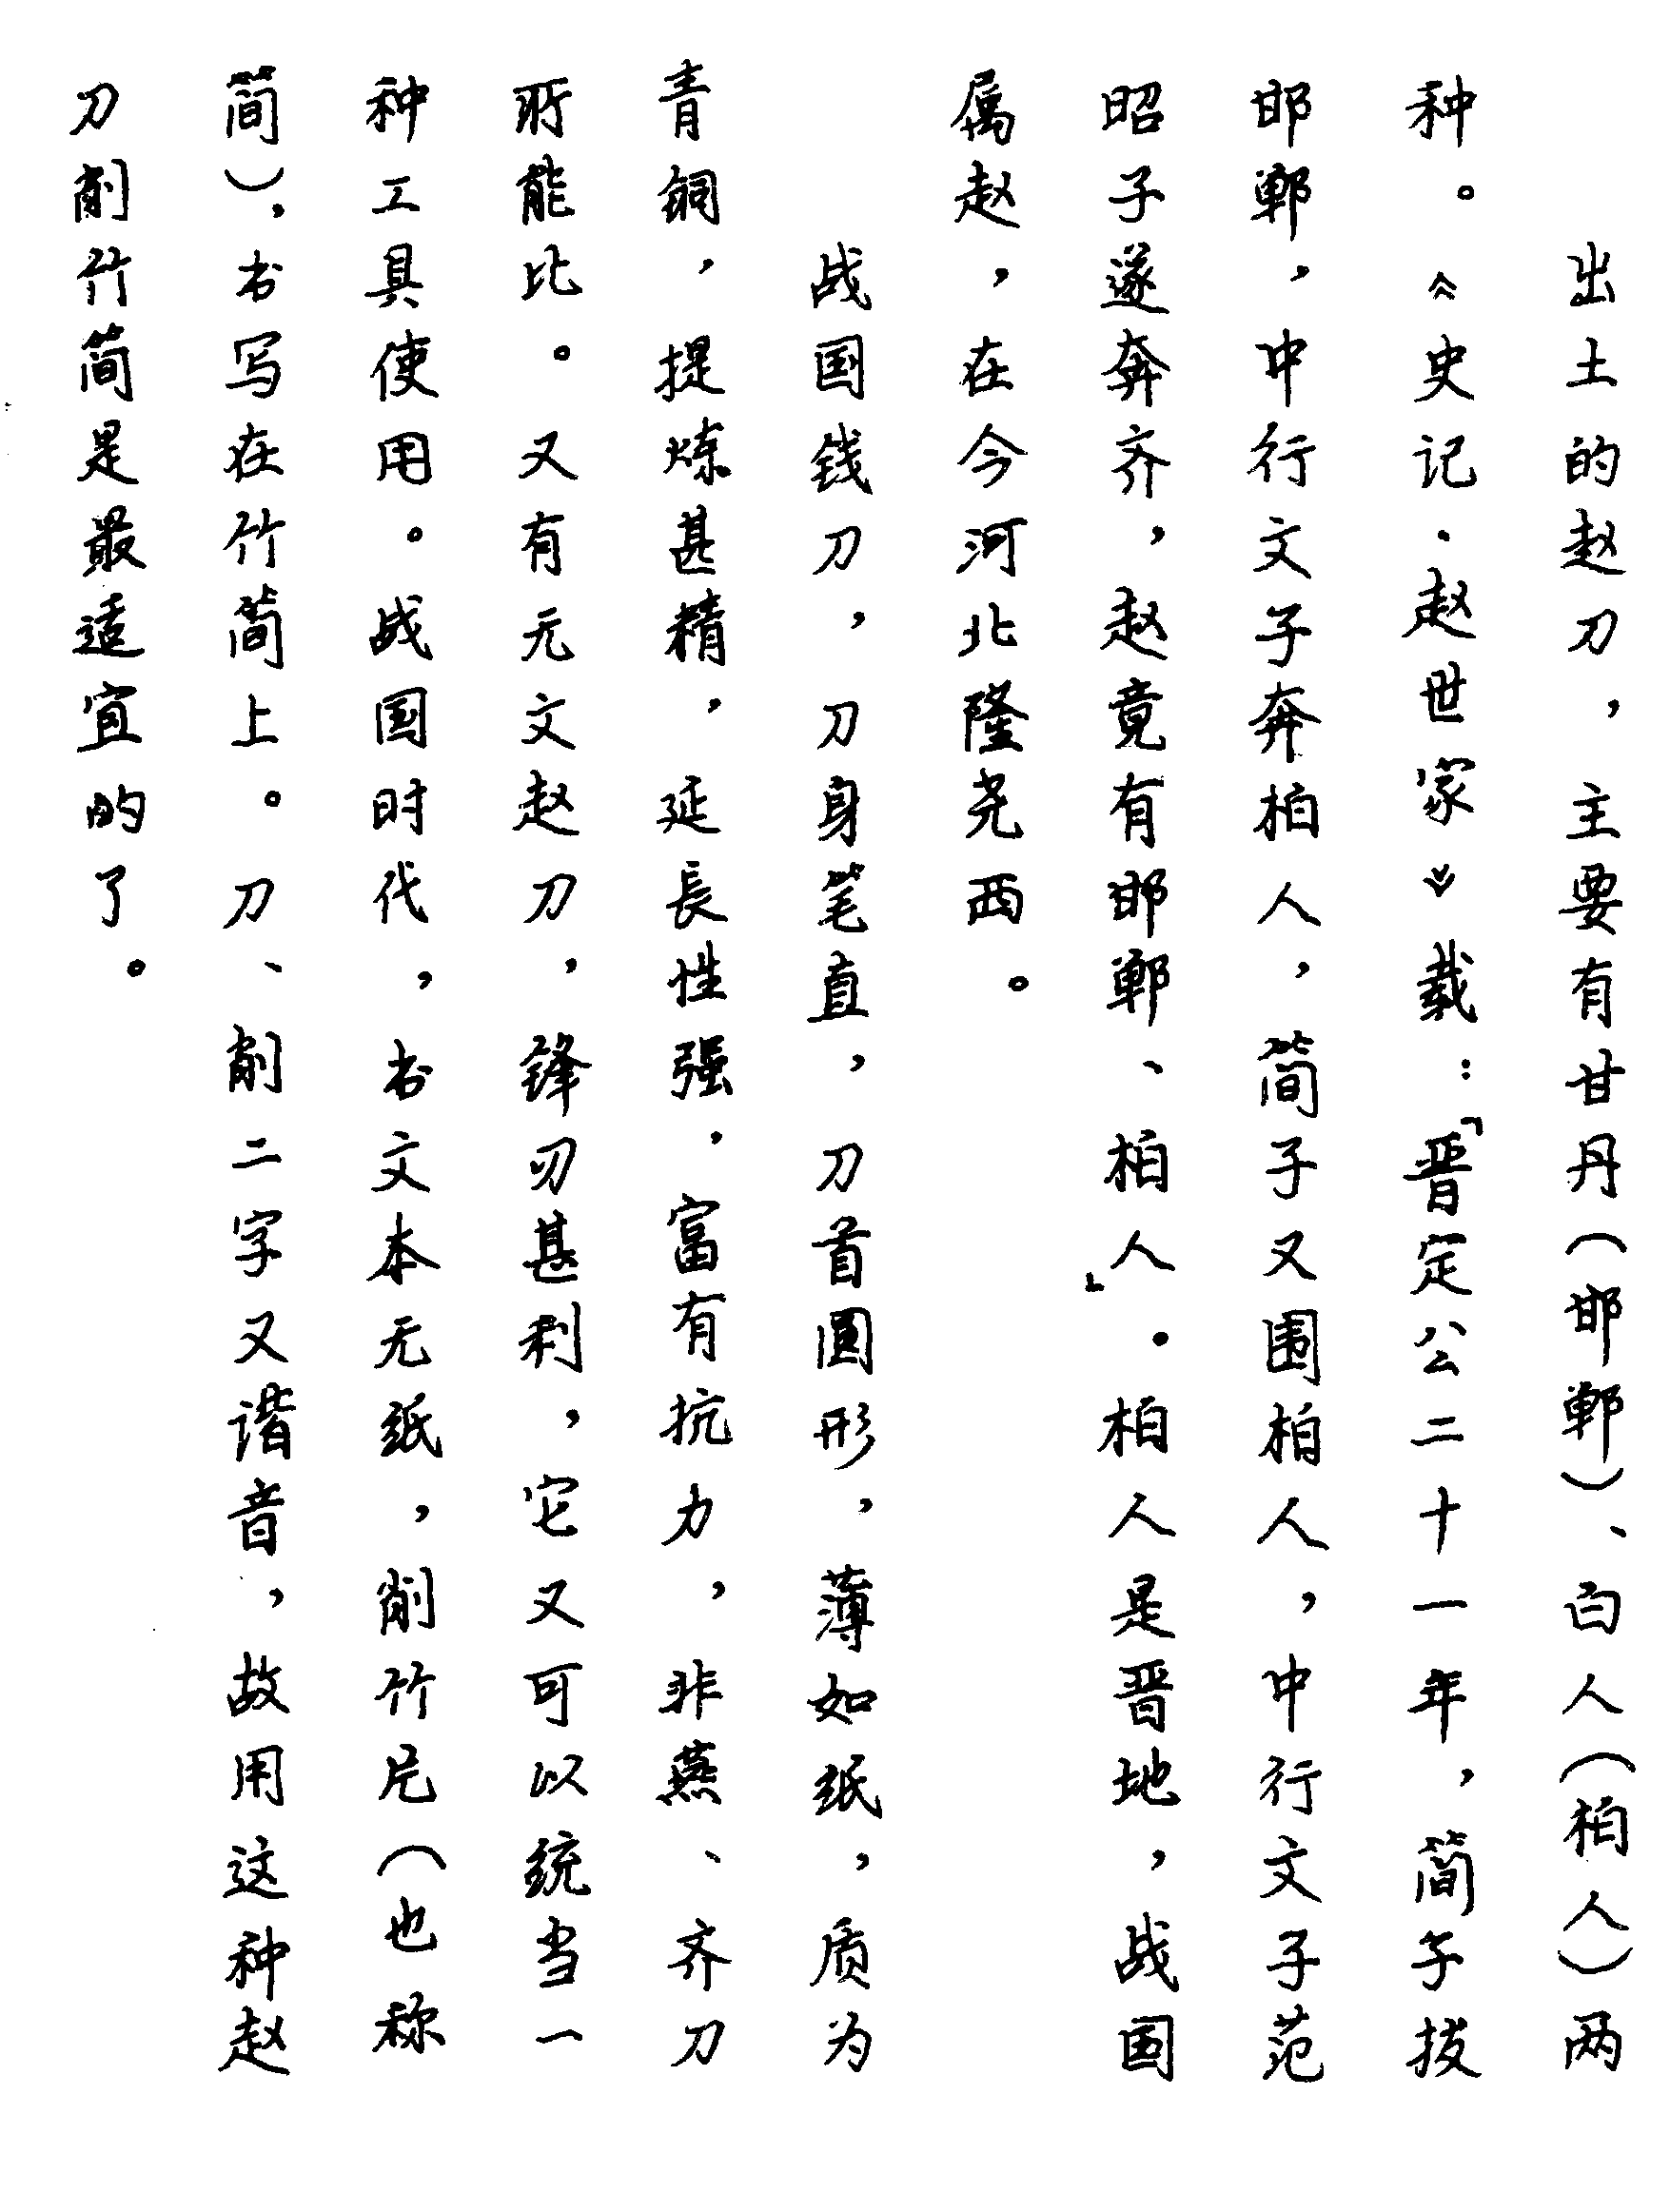 出土的赵刀，主要有甘丹（邯郸）、白人（柏人）两
种。《史记·赵世家》载：「晋定公二十一年，简子拔
邯郸，中行文子奔柏人，简子又围柏人，中行文子范
昭子遂奔齐，赵竟有邯郸、柏人」。柏人是晋地，战国
属赵，在今河北隆尧西。
战国钱刀，刀身笔直，刀首圆形，薄如纸，质为
青铜，提炼甚精，延長性强，富有抗力，非燕、齐刀
所能比。又有无文赵刀，锋刃甚利，它又可以统当一
种工具使用。战国时代，书文本无纸，削竹片（也称
简），书写在竹简上。刀、削二字又谐音，故用这种赵
刀削竹简是最适宜的了。